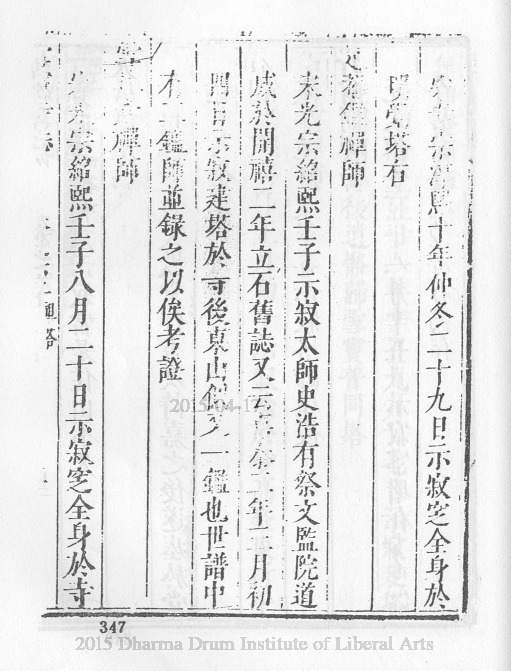 宗淳熙十年仲冬二十九日示寂窆全身於
明覺塔石
鑑禪師
宋光宗紹熙壬子示寂太師史浩有祭文監院道
威於開禧二年立石舊誌又云二年二月初
四日示寂建塔於寺後東山一鑑也世譜中
有二鑑師並錄之以俟考證
禪師
宋光宗紹熙壬子八月二十日示寂窆全身於寺
塔
2015-04-17
347
2015 Dharma Drum Institute of Liberal Arts